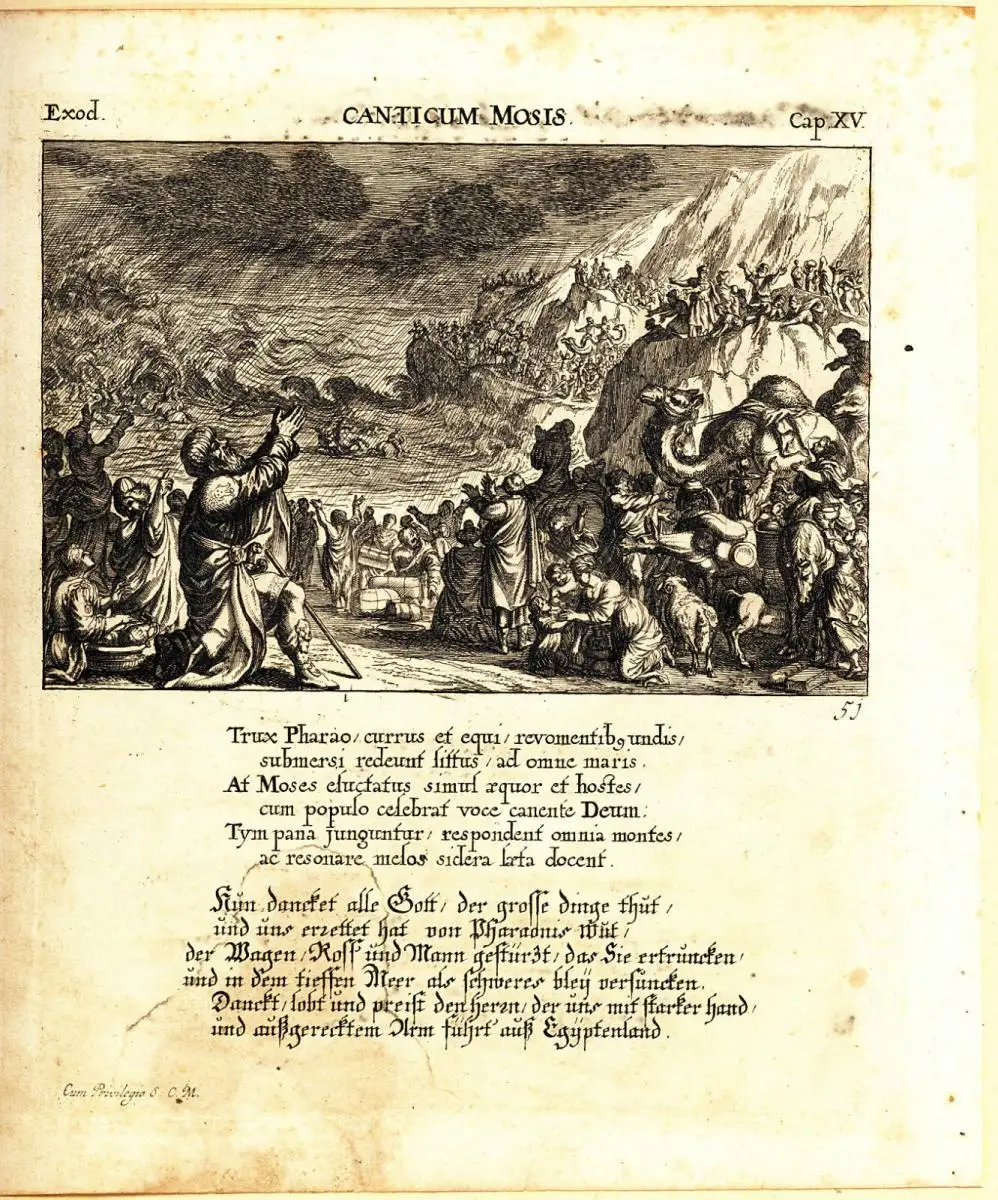 Exod.
CANTICUM MOSIS.
Cap. XV.
51
Trux Pharao/ currus et equi/ revomentibꝰ undis/
submersi redeunt littus/ ad omne maris.
At Moses eluctatus simul æquor et hostes/
cum populo celebrat voce canente Deum:
Tympana junguntur/ respondent omnia montes/
ac resonare melos sidera læta docent.
Nun dancket alle Gott/ der grosse dinge thut/
und uns errettet hat von Pharaonis Wut/
der Wagen/ Ross und Mann gestürzt/ das Sie ertruncken/
und in dem tieffen Meer als schweres bleÿ versuncken.
Danckt/ lobt und preist den herrn/ der uns mit starker hand/
und außgerecktem Arm führt auß Egÿptenland.
Cum Privilegio S. C. M.